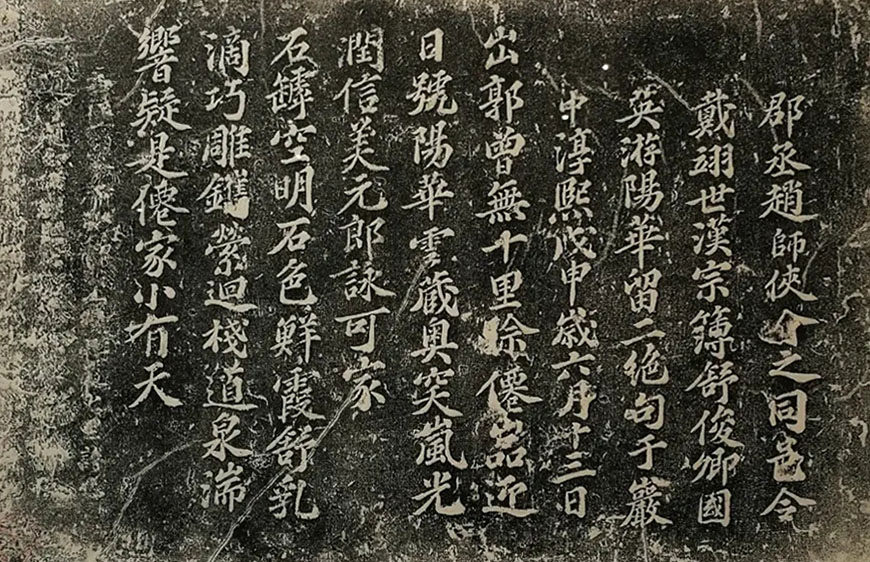 郡丞趙師俠介之同邑令
戴翊世漢宗簿舒俊卿國
英游陽華留二絕句于巖
中淳熙戊申歲六月十三日
出郭曾無十里賒僊嵒近
日號陽華雲藏奥突嵐光
潤信美元郎詠可家
石罅空明石色鮮霞舒乳
滴巧雕鐫縈迴棧道泉湍
響疑是僊家小有天